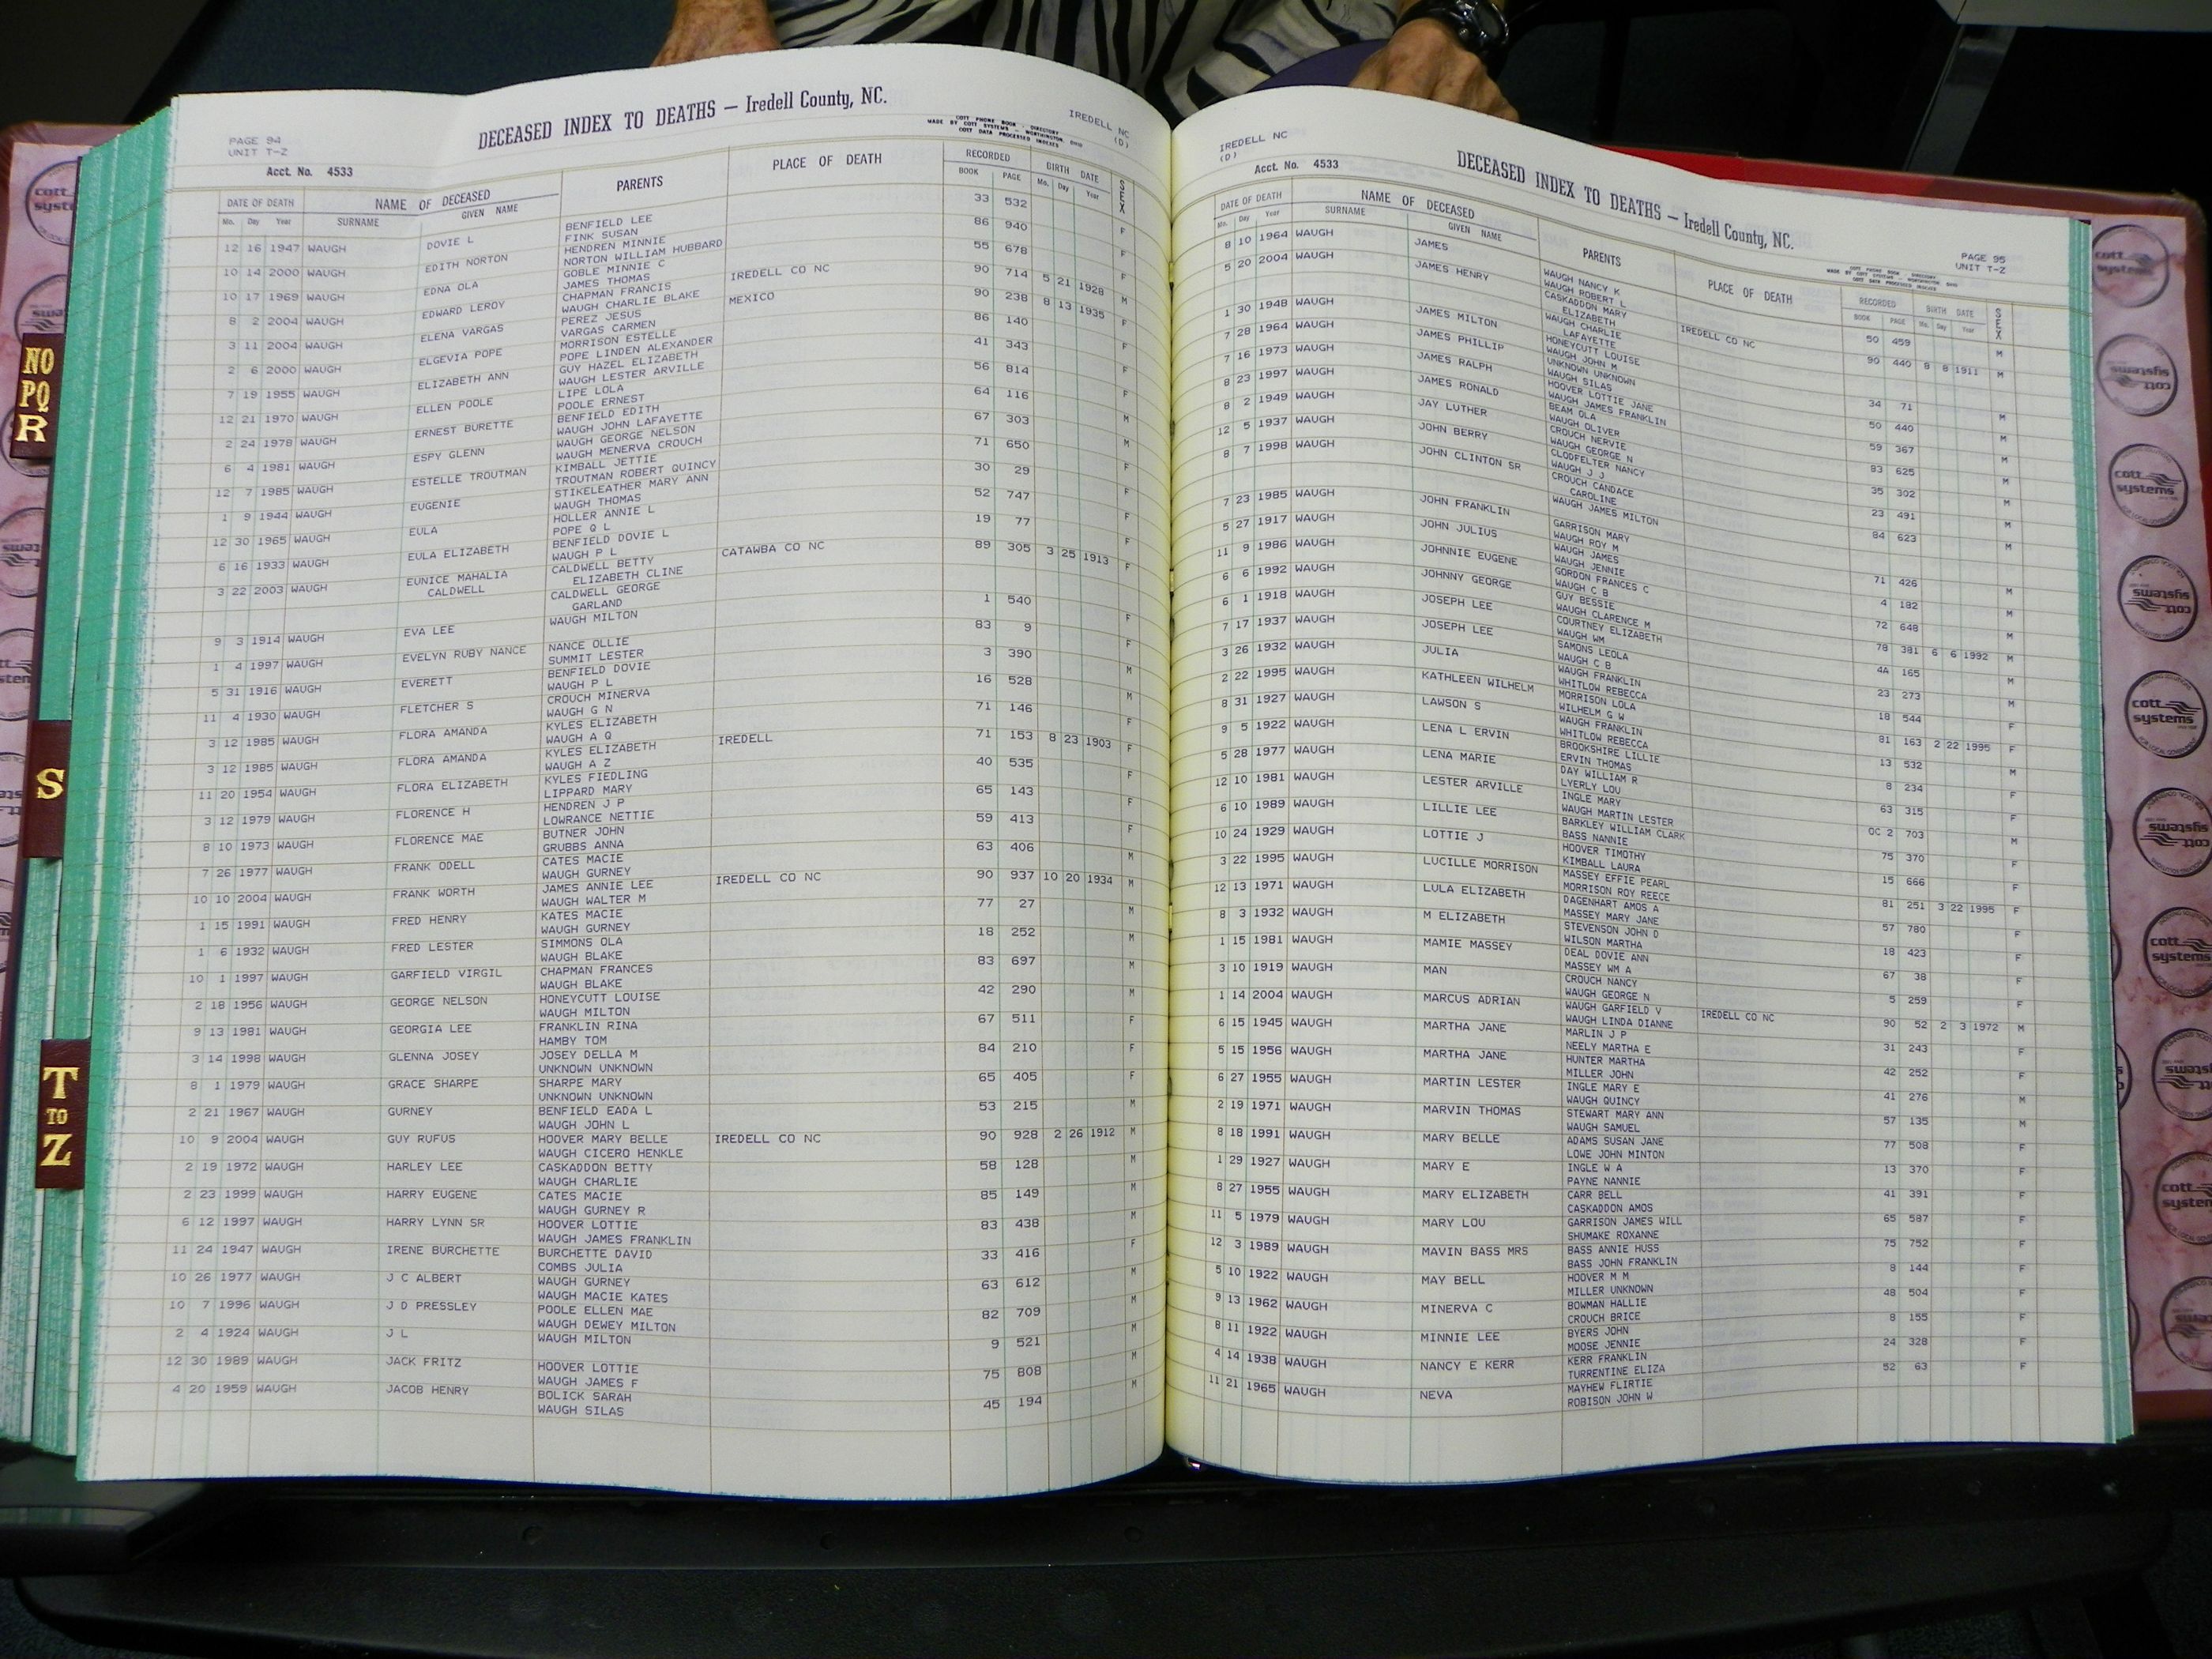 PAGE 94
UNIT T-Z
DECEASED INDEX TO DEATHS — Iredell County, NC.
COTT PHONE BOOK - DIRECTORY
MADE BY COTT SYSTEMS - WORTHINGTON, OHIO
COTT DATA PROCESSED INDEXES
IREDELL NC
(D)
Acct. No. 4533
DATE OF DEATH NAME OF DECEASED PARENTS PLACE OF DEATH RECORDED BIRTH DATE SEX
Mo. Day Year SURNAME GIVEN NAME BOOK PAGE Mo. Day Year
12 16 1947 WAUGH DOVIE L BENFIELD LEE 33 532 F
FINK SUSAN
10 14 2000 WAUGH EDITH NORTON HENDREN MINNIE 86 940 F
NORTON WILLIAM HUBBARD
10 17 1969 WAUGH EDNA OLA GOBLE MINNIE C 55 678
JAMES THOMAS
8 2 2004 WAUGH EDWARD LEROY CHAPMAN FRANCIS IREDELL CO NC 90 714 5 21 1928 M
WAUGH CHARLIE BLAKE
3 11 2004 WAUGH ELENA VARGAS PEREZ JESUS MEXICO 90 238 8 13 1935 F
VARGAS CARMEN
2 6 2000 WAUGH ELGEVIA POPE MORRISON ESTELLE 86 140 F
POPE LINDEN ALEXANDER
7 19 1955 WAUGH ELIZABETH ANN GUY HAZEL ELIZABETH 41 343 F
WAUGH LESTER ARVILLE
12 21 1970 WAUGH ELLEN POOLE LIPE LOLA 56 814 F
POOLE ERNEST
2 24 1978 WAUGH ERNEST BURETTE BENFIELD EDITH 64 116 M
WAUGH JOHN LAFAYETTE
6 4 1981 WAUGH ESPY GLENN WAUGH GEORGE NELSON 67 303 M
WAUGH MENERVA CROUCH
12 7 1985 WAUGH ESTELLE TROUTMAN KIMBALL JETTIE 71 650 F
TROUTMAN ROBERT QUINCY
1 9 1944 WAUGH EUGENIE STIKELEATHER MARY ANN 30 29 F
WAUGH THOMAS
12 30 1965 WAUGH EULA HOLLER ANNIE L 52 747 F
POPE Q L
6 16 1933 WAUGH EULA ELIZABETH BENFIELD DOVIE L 19 77
WAUGH P L
3 22 2003 WAUGH EUNICE MAHALIA CALDWELL BETTY CATAWBA CO NC 89 305 3 25 1913 F
CALDWELL ELIZABETH CLINE
CALDWELL GEORGE
GARLAND
9 3 1914 WAUGH EVA LEE WAUGH MILTON 1 540 F
1 4 1997 WAUGH EVELYN RUBY NANCE NANCE OLLIE 83 9 F
SUMMIT LESTER
5 31 1916 WAUGH EVERETT BENFIELD DOVIE 3 390 M
WAUGH P L
11 4 1930 WAUGH FLETCHER S CROUCH MINERVA 16 528 M
WAUGH G N
3 12 1985 WAUGH FLORA AMANDA KYLES ELIZABETH 71 146 F
WAUGH A Q
3 12 1985 WAUGH FLORA AMANDA KYLES ELIZABETH IREDELL 71 153 8 23 1903 F
WAUGH A Z
11 20 1954 WAUGH FLORA ELIZABETH KYLES FIEDLING 40 535 F
LIPPARD MARY
3 12 1979 WAUGH FLORENCE H HENDREN J P 65 143 F
LOWRANCE NETTIE
8 10 1973 WAUGH FLORENCE MAE BUTNER JOHN 59 413 F
GRUBBS ANNA
7 26 1977 WAUGH FRANK ODELL CATES MACIE 63 406 M
WAUGH GURNEY
10 10 2004 WAUGH FRANK WORTH JAMES ANNIE LEE IREDELL CO NC 90 937 10 20 1934 M
WAUGH WALTER M
1 15 1991 WAUGH FRED HENRY KATES MACIE 77 27 M
WAUGH GURNEY
1 6 1932 WAUGH FRED LESTER SIMMONS OLA 18 252 M
WAUGH BLAKE
10 1 1997 WAUGH GARFIELD VIRGIL CHAPMAN FRANCES 83 697 M
WAUGH BLAKE
2 18 1956 WAUGH GEORGE NELSON HONEYCUTT LOUISE 42 290 M
WAUGH MILTON
9 13 1981 WAUGH GEORGIA LEE FRANKLIN RINA 67 511 F
HAMBY TOM
3 14 1998 WAUGH GLENNA JOSEY JOSEY DELLA M 84 210 F
UNKNOWN UNKNOWN
8 1 1979 WAUGH GRACE SHARPE SHARPE MARY 65 405 F
UNKNOWN UNKNOWN
2 21 1967 WAUGH GURNEY BENFIELD EADA L 53 215 M
WAUGH JOHN L
10 9 2004 WAUGH GUY RUFUS HOOVER MARY BELLE IREDELL CO NC 90 928 2 26 1912 M
WAUGH CICERO HENKLE
2 19 1972 WAUGH HARLEY LEE CASKADDON BETTY 58 128 M
WAUGH CHARLIE
2 23 1999 WAUGH HARRY EUGENE CATES MACIE 85 149 M
WAUGH GURNEY R
6 12 1997 WAUGH HARRY LYNN SR HOOVER LOTTIE 83 438 M
WAUGH JAMES FRANKLIN
11 24 1947 WAUGH IRENE BURCHETTE BURCHETTE DAVID 33 416 F
COMBS JULIA
10 26 1977 WAUGH J C ALBERT WAUGH GURNEY 63 612 M
WAUGH MACIE KATES
10 7 1996 WAUGH J D PRESSLEY POOLE ELLEN MAE 82 709 M
WAUGH DEWEY MILTON
2 4 1924 WAUGH J L WAUGH MILTON 9 521 M
12 30 1989 WAUGH JACK FRITZ HOOVER LOTTIE 75 808 M
WAUGH JAMES F
4 20 1959 WAUGH JACOB HENRY BOLICK SARAH 45 194 M
WAUGH SILAS
IREDELL NC
(D)
DECEASED INDEX TO DEATHS — Iredell County, NC.
PAGE 95
UNIT T-Z
Acct. No. 4533
DATE OF DEATH NAME OF DECEASED PARENTS PLACE OF DEATH RECORDED BIRTH DATE SEX
Mo. Day Year SURNAME GIVEN NAME BOOK PAGE Mo. Day Year
8 10 1964 WAUGH JAMES WAUGH NANCY K 50 459 M
WAUGH ROBERT L
5 20 2004 WAUGH JAMES HENRY CASKADDON MARY IREDELL CO NC 90 440 8 8 1911 M
ELIZABETH
WAUGH CHARLIE
LAFAYETTE
1 30 1948 WAUGH JAMES MILTON HONEYCUTT LOUISE 34 71 M
WAUGH JOHN M
7 28 1964 WAUGH JAMES PHILLIP UNKNOWN UNKNOWN 50 440 M
WAUGH SILAS
7 16 1973 WAUGH JAMES RALPH HOOVER LOTTIE JANE 59 367 M
WAUGH JAMES FRANKLIN
8 23 1997 WAUGH JAMES RONALD BEAM OLA 83 625 M
WAUGH OLIVER
8 2 1949 WAUGH JAY LUTHER CROUCH NERVIE 35 302 M
WAUGH GEORGE N
12 5 1937 WAUGH JOHN BERRY CLODFELTER NANCY 23 491 M
WAUGH J J
8 7 1998 WAUGH JOHN CLINTON SR CROUCH CANDACE 84 623 M
CAROLINE
WAUGH JAMES MILTON
7 23 1985 WAUGH JOHN FRANKLIN GARRISON MARY 71 426 M
WAUGH ROY M
5 27 1917 WAUGH JOHN JULIUS WAUGH JAMES 4 182 M
WAUGH JENNIE
11 9 1986 WAUGH JOHNNIE EUGENE GORDON FRANCES C 72 648 M
WAUGH C B
6 6 1992 WAUGH JOHNNY GEORGE GUY BESSIE 78 381 6 6 1992 M
WAUGH CLARENCE M
6 1 1918 WAUGH JOSEPH LEE COURTNEY ELIZABETH 4A 165 M
WAUGH WM
7 17 1937 WAUGH JOSEPH LEE SAMONS LEOLA 23 273 M
WAUGH C B
3 26 1932 WAUGH JULIA WAUGH FRANKLIN 18 544 F
WHITLOW REBECCA
2 22 1995 WAUGH KATHLEEN WILHELM MORRISON LOLA 81 163 2 22 1995 F
WILHELM G W
8 31 1927 WAUGH LAWSON S WAUGH FRANKLIN 13 532 M
WHITLOW REBECCA
9 5 1922 WAUGH LENA L ERVIN BROOKSHIRE LILLIE 8 234 F
ERVIN THOMAS
5 28 1977 WAUGH LENA MARIE DAY WILLIAM R 63 315 F
LYERLY LOU
12 10 1981 WAUGH LESTER ARVILLE INGLE MARY OC 2 703 M
WAUGH MARTIN LESTER
6 10 1989 WAUGH LILLIE LEE BARKLEY WILLIAM CLARK 75 370 F
BASS NANNIE
10 24 1929 WAUGH LOTTIE J HOOVER TIMOTHY 15 666 F
KIMBALL LAURA
3 22 1995 WAUGH LUCILLE MORRISON MASSEY EFFIE PEARL 81 251 3 22 1995 F
MORRISON ROY REECE
12 13 1971 WAUGH LULA ELIZABETH DAGENHART AMOS A 57 780 F
MASSEY MARY JANE
8 3 1932 WAUGH M ELIZABETH STEVENSON JOHN D 18 423 F
WILSON MARTHA
1 15 1981 WAUGH MAMIE MASSEY DEAL DOVIE ANN 67 38 F
MASSEY WM A
3 10 1919 WAUGH MAN CROUCH NANCY 5 259
WAUGH GEORGE N
1 14 2004 WAUGH MARCUS ADRIAN WAUGH GARFIELD V IREDELL CO NC 90 52 2 3 1972 M
WAUGH LINDA DIANNE
6 15 1945 WAUGH MARTHA JANE MARLIN J P 31 243 F
NEELY MARTHA E
5 15 1956 WAUGH MARTHA JANE HUNTER MARTHA 42 252 F
MILLER JOHN
6 27 1955 WAUGH MARTIN LESTER INGLE MARY E 41 276 M
WAUGH QUINCY
2 19 1971 WAUGH MARVIN THOMAS STEWART MARY ANN 57 135 M
WAUGH SAMUEL
8 18 1991 WAUGH MARY BELLE ADAMS SUSAN JANE 77 508 F
LOWE JOHN MINTON
1 29 1927 WAUGH MARY E INGLE W A 13 370 F
PAYNE NANNIE
8 27 1955 WAUGH MARY ELIZABETH CARR BELL 41 391 F
CASKADDON AMOS
11 5 1979 WAUGH MARY LOU GARRISON JAMES WILL 65 587 F
SHUMAKE ROXANNE
12 3 1989 WAUGH MAVIN BASS MRS BASS ANNIE HUSS 75 752 F
BASS JOHN FRANKLIN
5 10 1922 WAUGH MAY BELL HOOVER M M 8 144 F
MILLER UNKNOWN
9 13 1962 WAUGH MINERVA C BOWMAN HALLIE 48 504 F
CROUCH BRICE
8 11 1922 WAUGH MINNIE LEE BYERS JOHN 8 155 F
MOOSE JENNIE
4 14 1938 WAUGH NANCY E KERR KERR FRANKLIN 24 328 F
TURRENTINE ELIZA
11 21 1965 WAUGH NEVA MAYHEW FLIRTIE 52 63 F
ROBISON JOHN W
NO
PQ
R
S
T
TO
Z
cott
systems